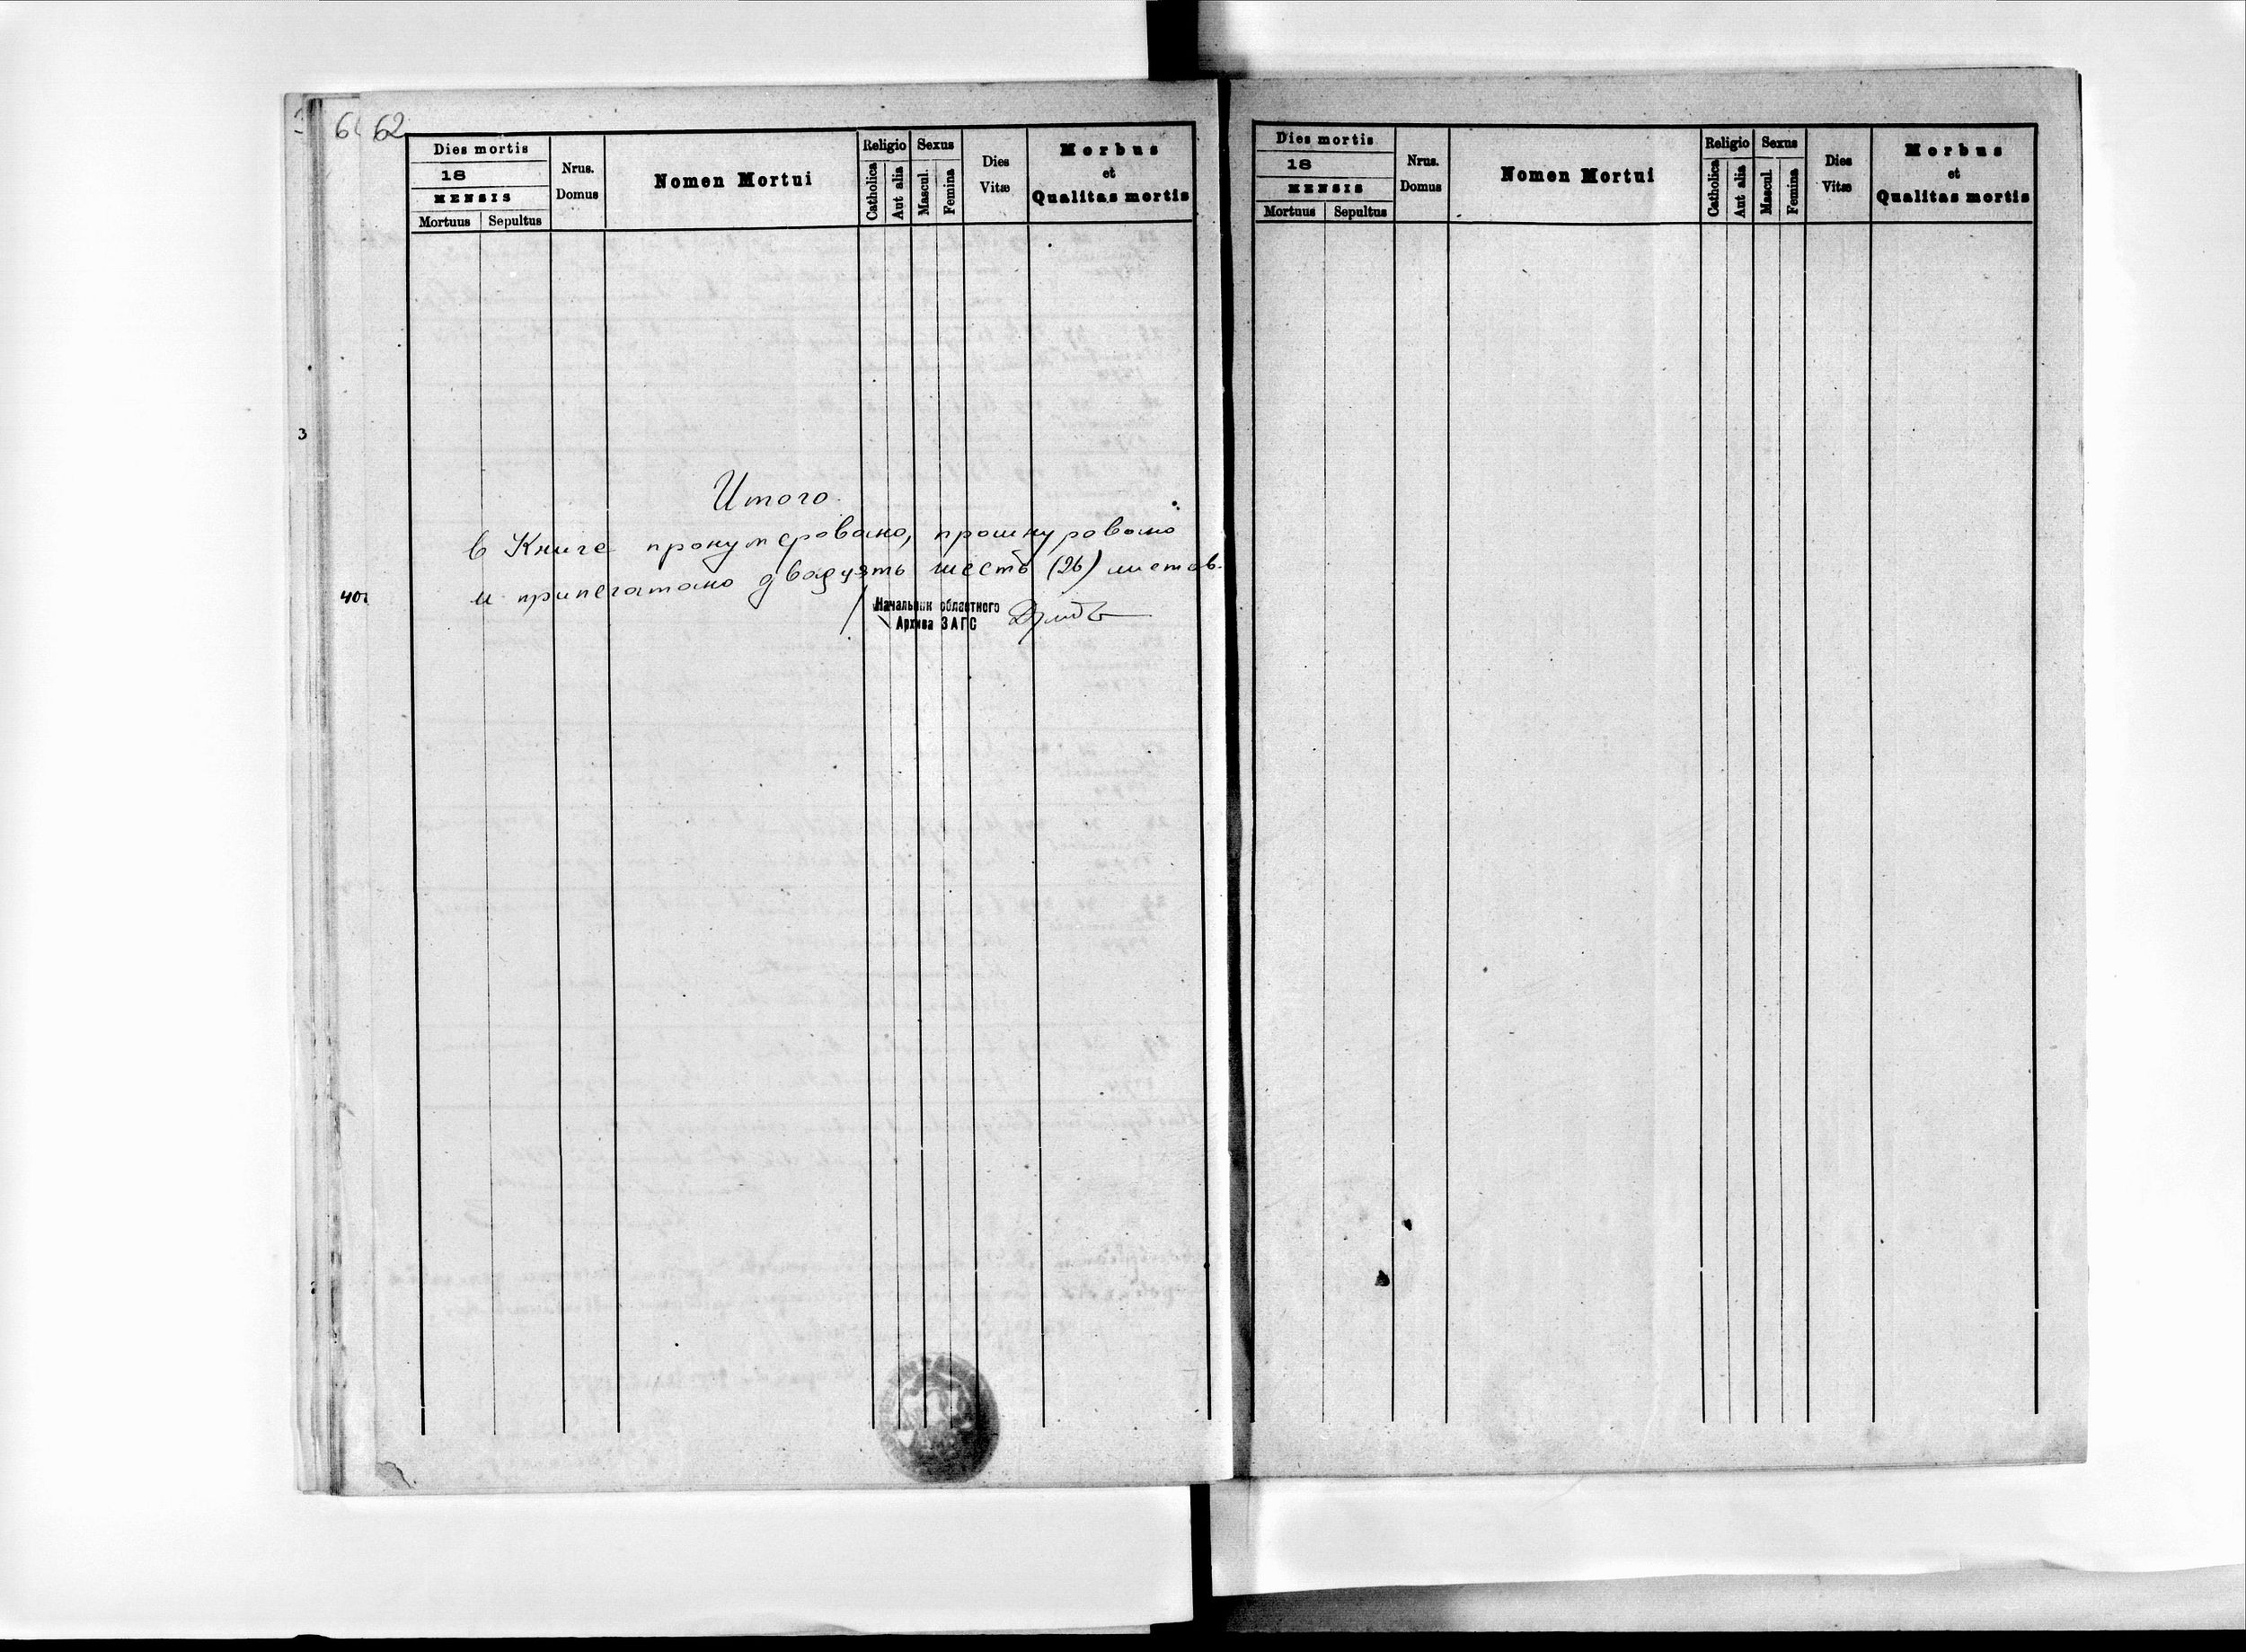 62
Dies mortis
18
MENSIS
Mortuus Sepultus
Nrus. Domus
Nomen Mortui
Religio
Catholica Aut alia
Sexus
Mascul. Femina
Dies Vitæ
Morbus
et
Qualitas mortis
Итого
в Книге пронумеровано, прошнуровано
и припечатано двадцять шесть (26) листов.
Начальник областного
Архива ЗАГС
3
40
Dies mortis
18
MENSIS
Mortuus Sepultus
Nrus. Domus
Nomen Mortui
Religio
Catholica Aut alia
Sexus
Mascul. Femina
Dies Vitæ
Morbus
et
Qualitas mortis